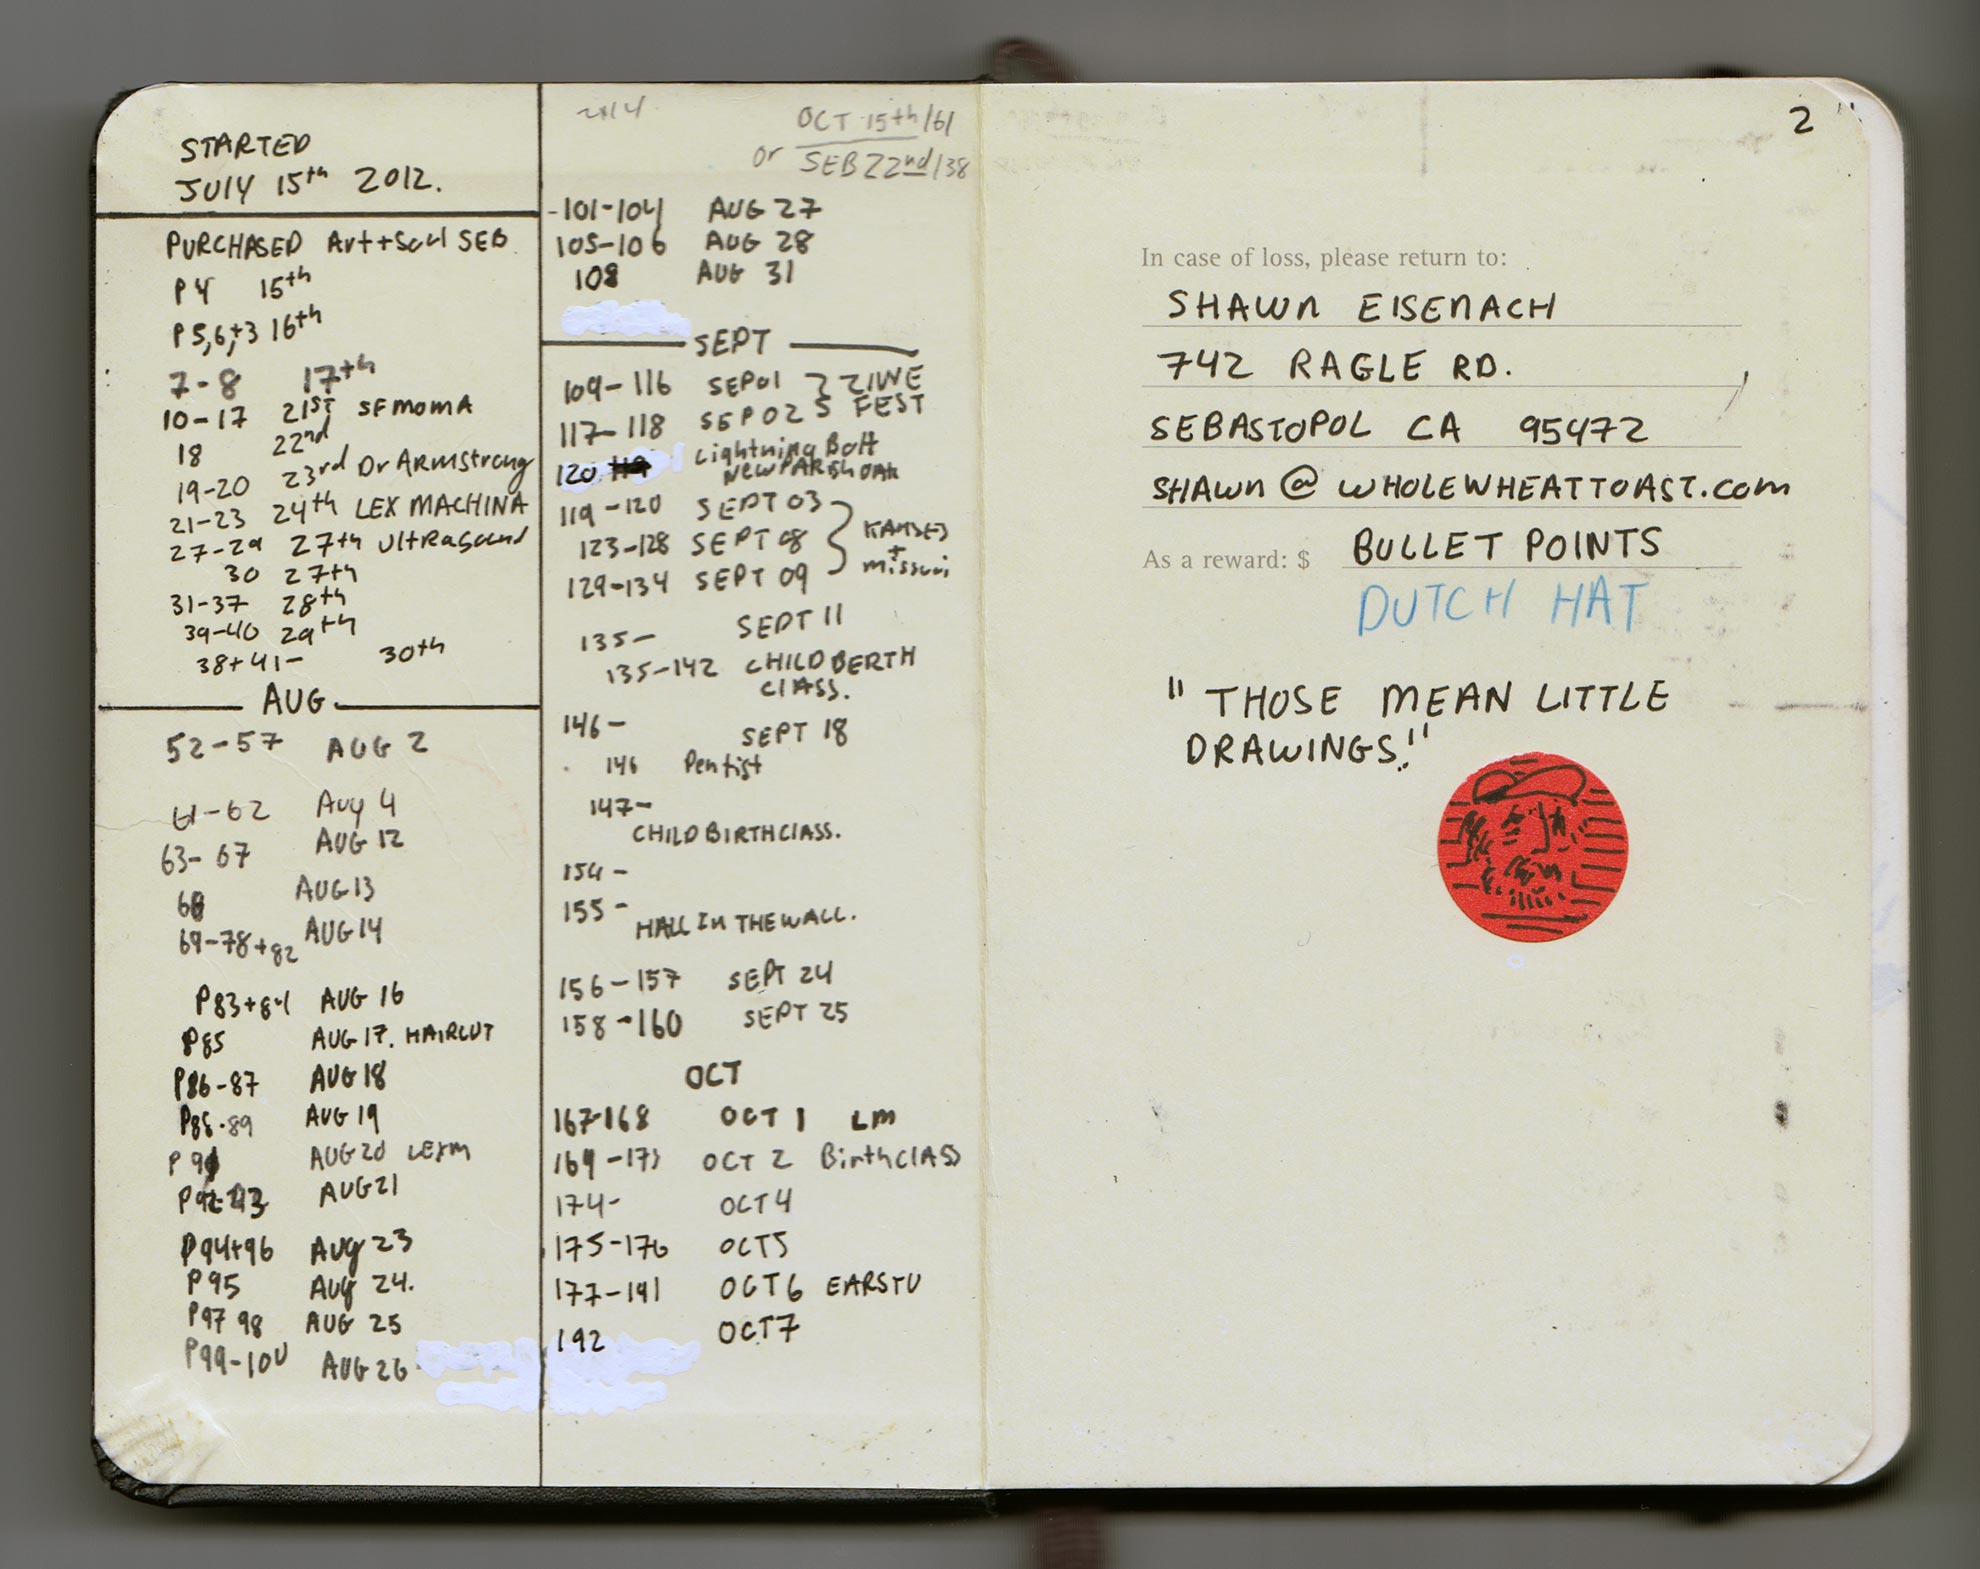 STARTED
JULY 15th 2012.
PURCHASED Art+Soul SEB
P4 15th
P5,6,+3 16th
7-8 17th
10-17 21ST SFMOMA
18 22nd
19-20 23rd Dr ARMstrong
21-23 24th LEX MACHINA
27-29 27th UltRasound
30 27th
31-37 28th
39-40 29th
38+41- 30th
AUG
52-57 AUG 2
61-62 Aug 4
63-67 AUG 12
68 AUG 13
69-78+82 AUG 14
P83+84 AUG 16
P85 AUG 17. HAIRCUT
P86-87 AUG 18
P88-89 AUG 19
AUG 20 LEXM
AUG 21
P94+96 Aug 23
P95 Aug 24.
P97 98 AUG 25
P99-100 AUG 26
2014
OCT 15th/61
or SEB 22nd/38
-101-104 AUG 27
105-106 AUG 28
108 AUG 31
SEPT
109-116 SEP01 ZINE
117-118 SEP 02 FEST
120 Lightning Bolt
NEW PARISH OAK
119-120 SEPT 03
123-128 SEPT 08 KANSES
+
129-134 SEPT 09 missouri
135- SEPT 11
135-142 CHILD BERTH
ClASS.
146- SEPT 18
146 Dentist
147-
CHILD BIRTH ClASS.
154-
155- HALL In THE WALL.
156-157 SEPT 24
158-160 SEPT 25
OCT
167-168 OCT 1 LM
OCT 2 BirthClASS
174- OCT 4
175-176 OCT5
177-191 OCT 6 EARSTU
192 OCT7
2
In case of loss, please return to:
SHAWn EISEnACH
742 RAGLE RD.
SEBASTOPOL CA 95472
SHAWn@WHOLEWHEATTOAST.com
As a reward: $ BULLET POINTS
DUTCH HAT
"THOSE MEAN LITTLE
DRAWINGS!"